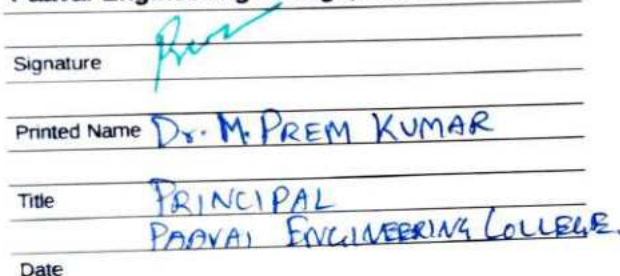 Paavai Engineering
Signature
Printed Name Dr. M. PREM KUMAR
Title PRINCIPAL
PAAVAI ENGINEERING COLLEGE.
Date